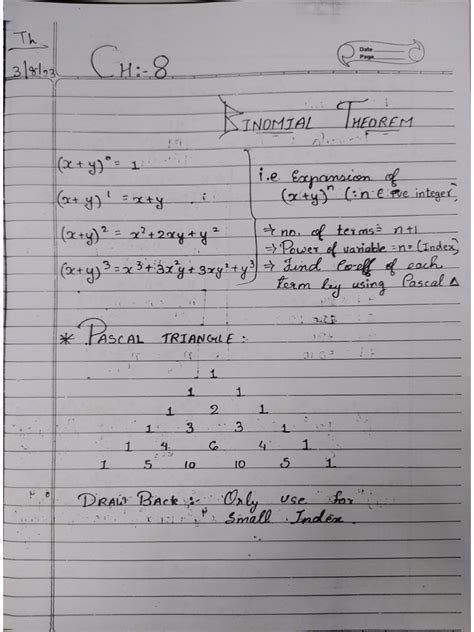 Th
3/8/23
Date
Page
CH:-8
BINOMIAL THEOREM
(x+y)⁰ = 1
(x+y)¹ = x+y
(x+y)² = x²+2xy+y²
(x+y)³ = x³+3x²y+3xy²+y³
i.e Expansion of
(x+y)ⁿ (∵ n ∈ +ve integer)
⇒ no. of terms = n+1
⇒ Power of variable = n = (Index)
⇒ Find Co-eff of each
term by using Pascal Δ
* PASCAL TRIANGLE:-
1
1 1
1 2 1
1 3 3 1
1 4 6 4 1
1 5 10 10 5 1
DRAW BACK:- Only use for
small Index.